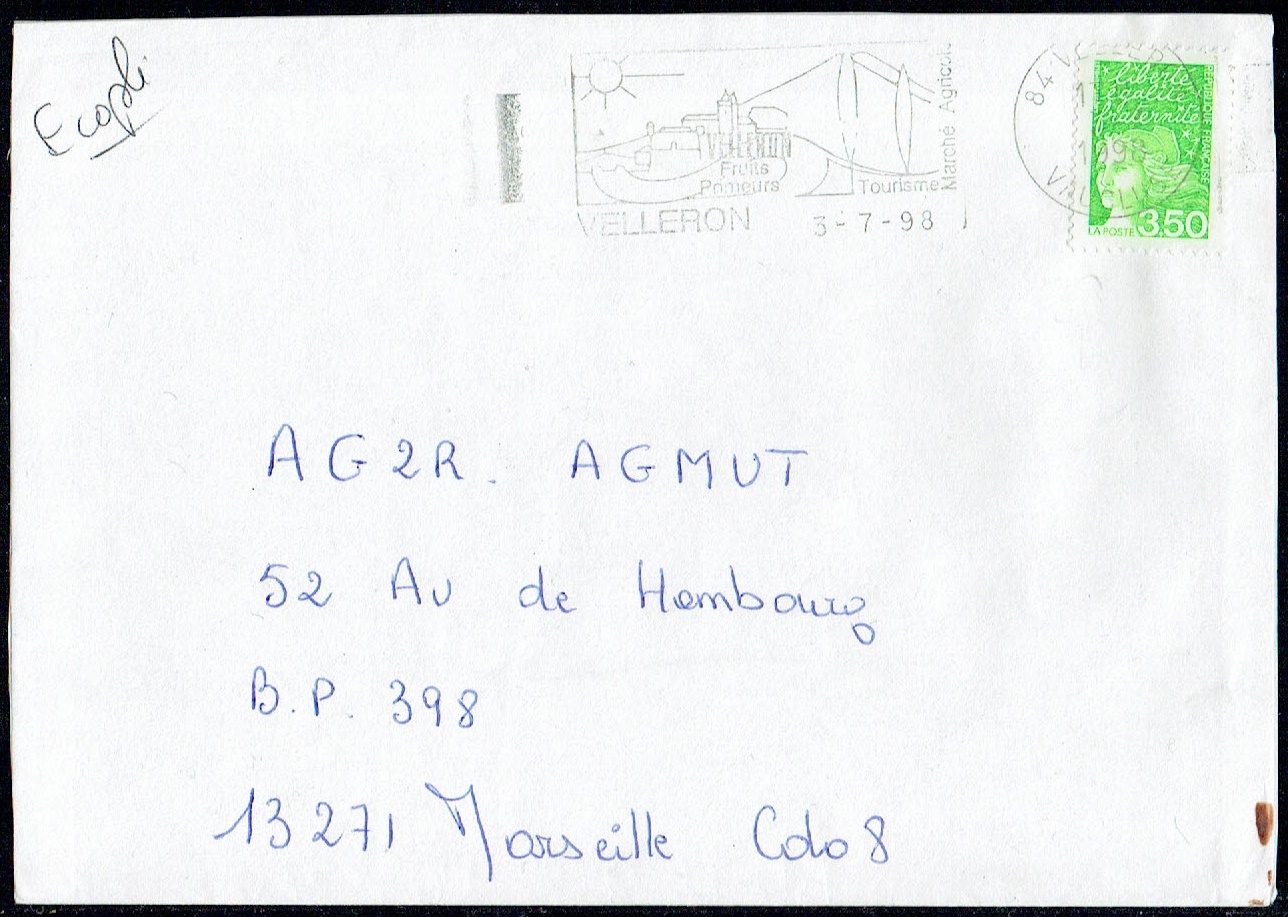 Ecopli
VELLERON
Fruits
Primeurs
Tourisme
Marché Agricol
VELLERON 3-7-98
84 VELLERON
1998
liberté
égalité
fraternité
RÉPUBLIQUE FRANÇAISE
LA POSTE 3,50
AG2R. AGMUT
52 Av de Hambourg
B.P. 398
13271 Marseille